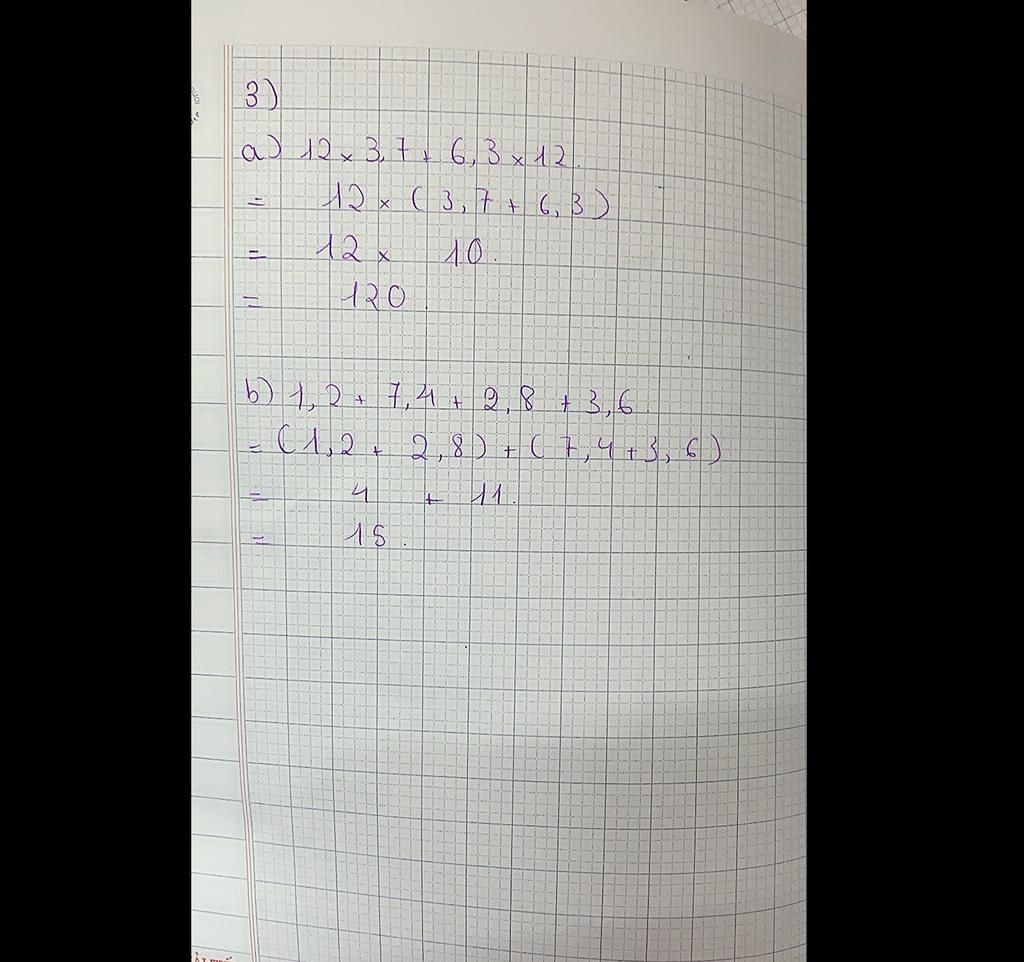 3)
a) 12 × 3,7 + 6,3 × 12.
= 12 × ( 3,7 + 6,3 )
= 12 × 10.
= 120.
b) 1,2 + 7,4 + 2,8 + 3,6.
= ( 1,2 + 2,8 ) + ( 7,4 + 3,6 )
= 4 + 11.
= 15.